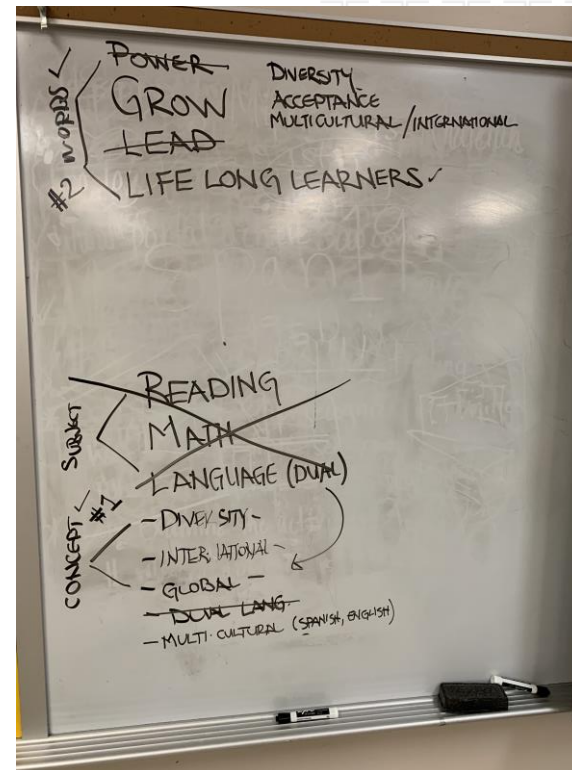 POWER
GROW
LEAD
LIFE LONG LEARNERS ✓
#2 WORDS ✓
DIVERSITY
ACCEPTANCE
MULTICULTURAL/INTERNATIONAL
SUBJECT
READING
MATH
LANGUAGE (DUAL)
CONCEPT ✓
#1
- DIVERSITY -
- INTERNATIONAL -
- GLOBAL -
- DUAL LANG.
- MULTI-CULTURAL (SPANISH, ENGLISH)